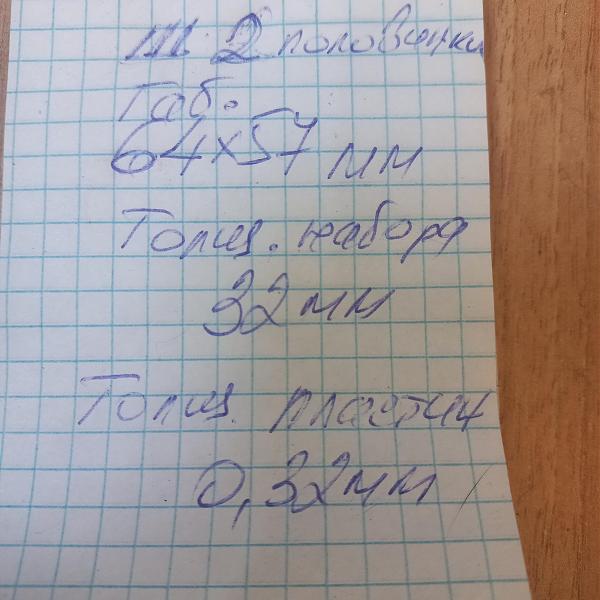 Ш 2 половинки
Габ.
64х57 мм
Толщ. набора
32 мм
Толщ. пластин
0,32 мм